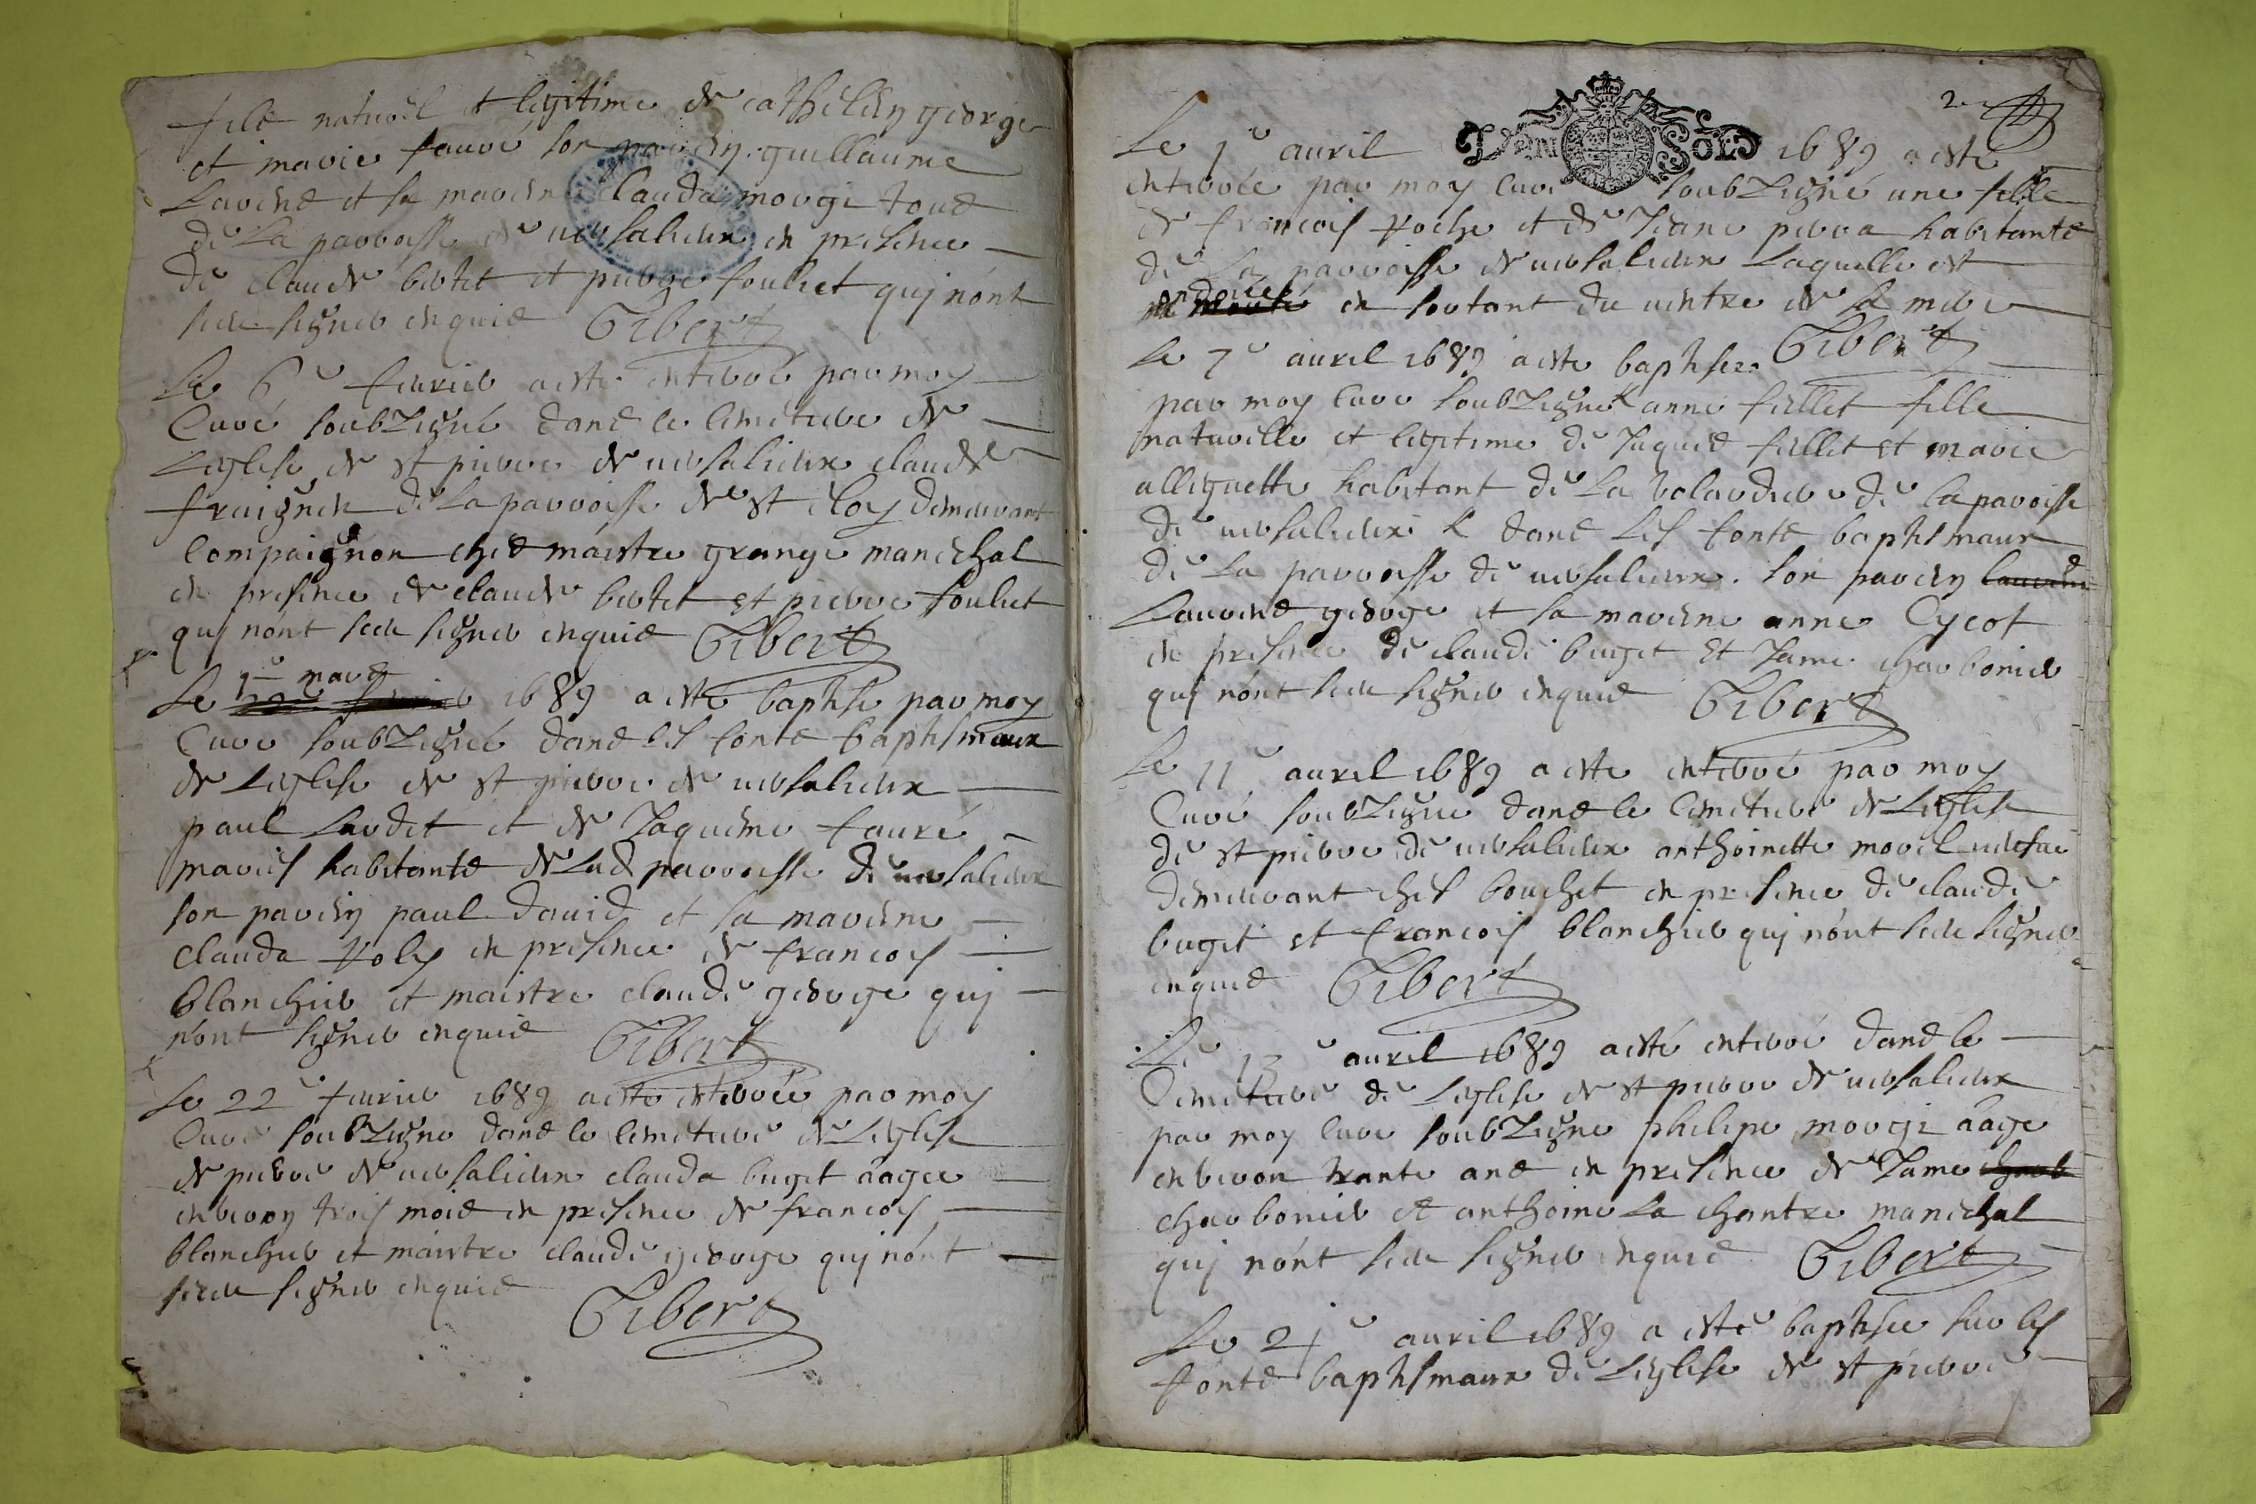 fils naturel et legitime de cathelin george
et marie fauré son parin guillaume
Laurens et sa marine clauda morge tous
de la parroisse de versalieux en presence
de claude bertet et pierre foulliet qui nont
sceu signer enquis Gibert
Le 6e feurier a esté enterré par moy
Curé soubsigné dans le cimetiere de
Leglise de st pierre de versalieux claude
de la parroisse de st eloy demeurant
Compaignon ches maistre grange marechal
en presence de claude bertet et pierre foulliet
qui nont sceu signer enquis Gibert
Le 1er mars 1689 a esté baptisé par moy
Curé soubsigné dans les fonts baptismaux
de Leglise de st pierre de versalieux
paul Lardet et de Jaqueme fauré
mariés habitants de Lad parroisse de versalieux
son parin paul david et sa marine
clauda Voly en presence de francois
blanchier et maistre claude george qui
nont signer enquis Gibert
Le 22e feurier 1689 a esté enterrée par moy
Curé soubsigné dans le cimetiere de Leglise
de pierre de versalieux clauda buget aagee
environ trois mois en presence de francois
blanchier et maistre claude george qui nont
sceu signer enquis
Gibert
2e
Le 1e auril 1689 a esté
enterrée par moy curé soubsigné une fille
de francois Voche et de Jeane perra habitants
de La parroisse de versalieux Laquelle est
ondoiee en sortant du ventre de sa mere
Gibert
Le 7e auril 1689 a esté baptisee
par moy curé soubsigné anne fillet fille
naturelle et legitime de Jaques fillet et marie
alleguette habitant de La volardiere de la paroisse
de versalieux dans Les fonts baptismaux
de La parroisse de versalieux. son parin
Laurens george et sa marine anne Cycot
en presence de claude buget et Jame charbonier
qui nont sceu signer enquis Gibert
Le 11e auril 1689 a esté enterré par moy
Curé soubsigné dans le cimetiere de Leglise
de st pierre de versalieux anthoinette morel
demeurant ches bouchet en presence de claude
buget et francois blanchier qui nont sceu signer
enquis Gibert
Le 13e auril 1689 a esté enterré dans le
Cimetiere de Leglise de st pierre de versalieux
par moy curé soubsigné philipe morge aage
environ trante ans en presence de Jame
charbonier et anthoine La chantre marechal
qui nont sceu signer enquis Gibert
Le 21e auril 1689 a esté baptisee sur les
fonts baptismaux de Leglise de st pierre